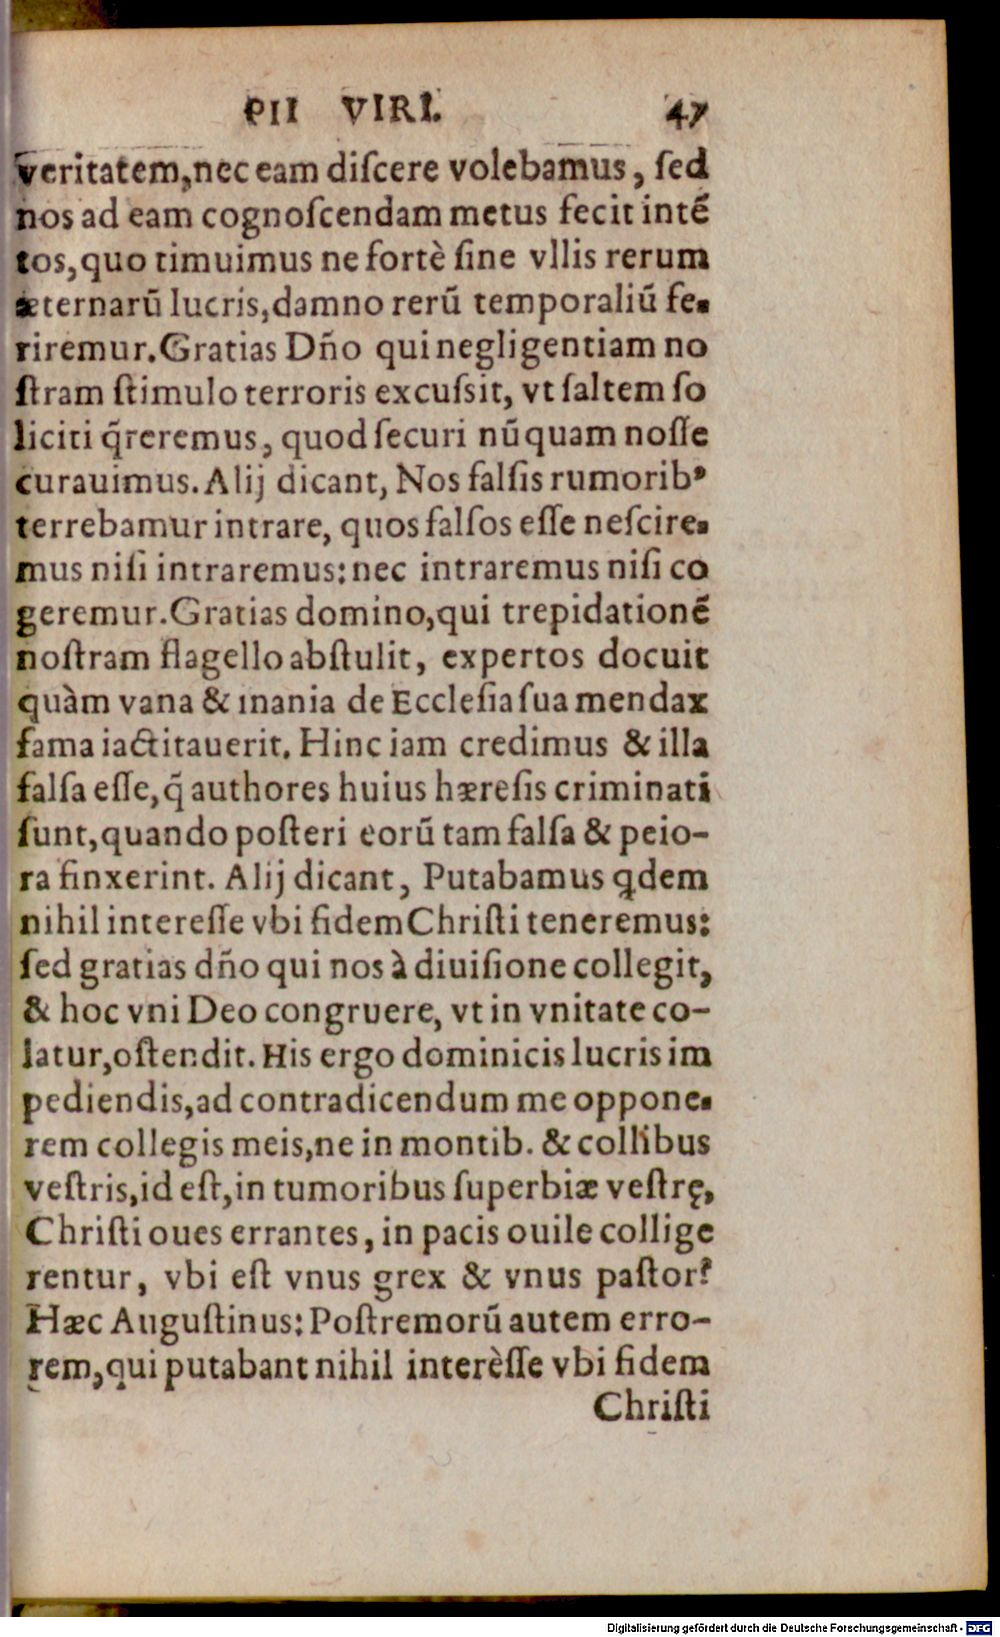 PII VIRI. 47
veritatem, nec eam diſcere volebamus, ſed
nos ad eam cognoſcendam metus fecitintẽ
tos, quo timuimus ne fortè ſine vllis rerum
æternarũ lucris, damno rerũ temporaliũ fe-
riremur. Gratias Dño qui negligentiam no
ſtram ſtimulo terroris excuſsit, vt ſaltem ſo
liciti q̃reremus, quod ſecuri nũquam noſſe
curauimus. Alij dicant, Nos falſis rumorib⁹
terrebamur intrare, quos falſos eſſe neſcire-
mus niſi intraremus: nec intraremus niſi co
geremur. Gratias domino, qui trepidationẽ
noſtram flagello abſtulit, expertos docuit
quàm vana & inania de Eccleſia ſua mendax
fama iactitauerit. Hinc iam credimus & illa
falſa eſſe, q̃ authores huius hæreſis criminati
ſunt, quando poſteri eorũ tam falſa & peio-
ra finxerint. Alij dicant, Putabamus qdem
nihil intereſſe vbi fidem Chriſti teneremus:
ſed gratias dño qui nos à diuiſione collegit,
& hoc vni Deo congruere, vt in vnitate co-
latur, oſtendit. His ergo dominicis lucris im
pediendis, ad contradicendum me oppone-
rem collegis meis, ne in montib. & collibus
veſtris, id eſt, in tumoribus ſuperbiæ veſtrę,
Chriſti oues errantes, in pacis ouile collige
rentur, vbi eſt vnus grex & vnus paſtor?
Hæc Auguſtinus: Poſtremorũ autem erro-
rem, qui putabant nihil interèſſe vbi fidem
Chriſti
Digitalisierung gefördert durch die Deutsche Forschungsgemeinschaft - DFG